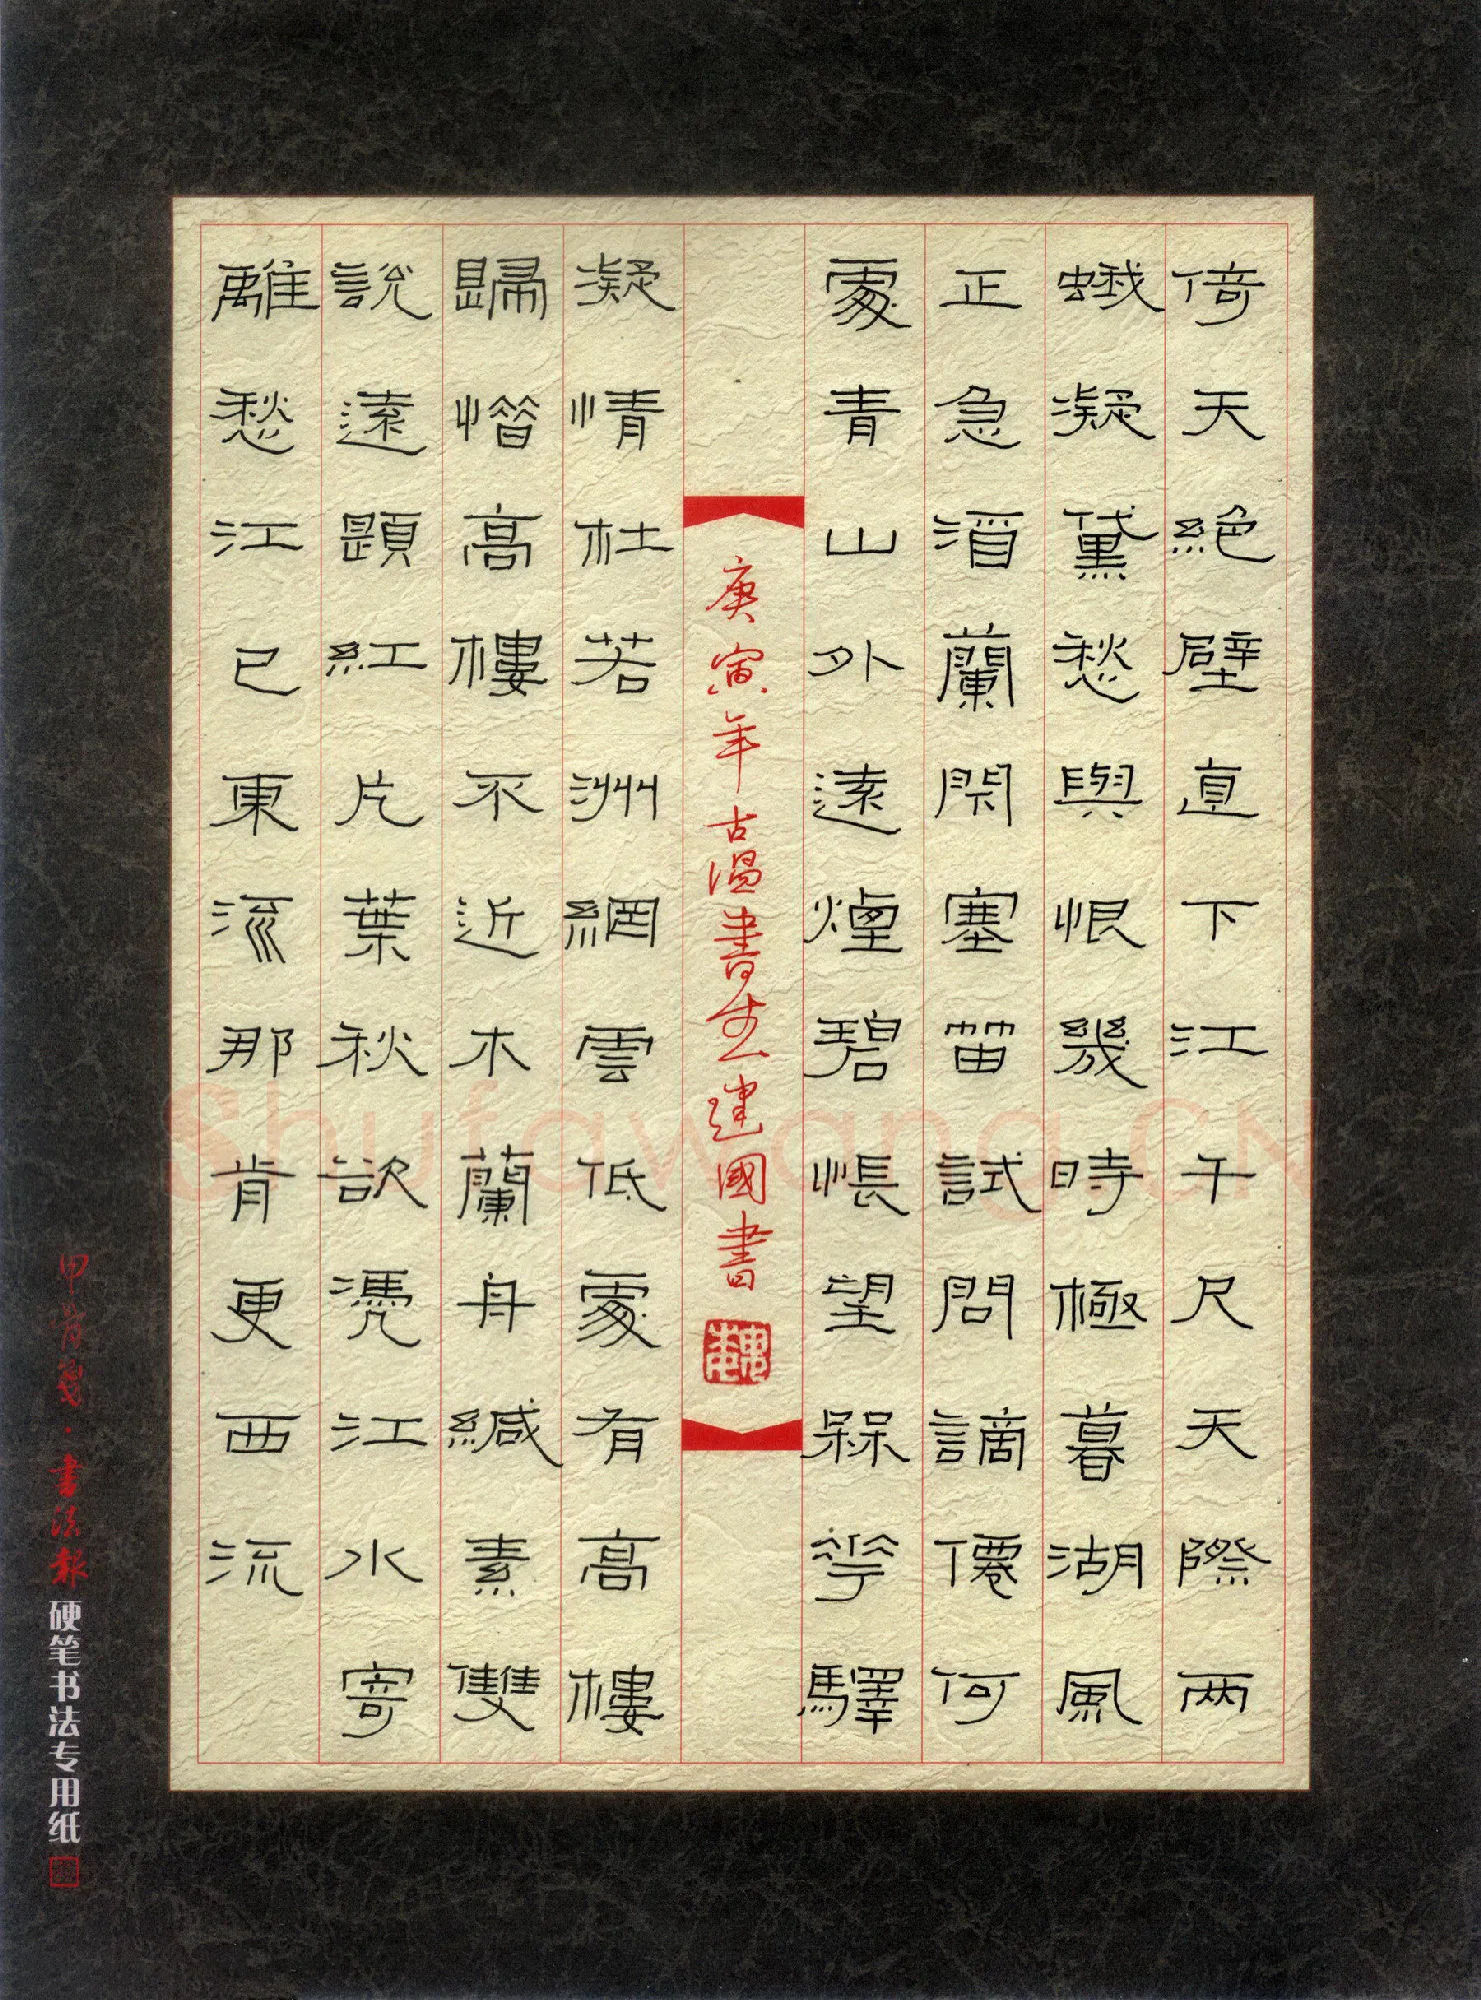 倚天絕壁直下江千尺天際兩
蛾凝黛愁與恨幾時極暮湖風
正急酒闌閑塞笛試問謫僊何
處青山外遠煙碧悵望槑花驛
凝情杜若洲網雲低處有高樓
歸憯高樓不近木蘭舟緘素雙
說遠題紅片葉秋欲憑江水寄
離愁江已東流那肯更西流
庚寅年古溫書生建國書
甲骨箋·書法報硬笔书法专用纸
Shufawang.CN